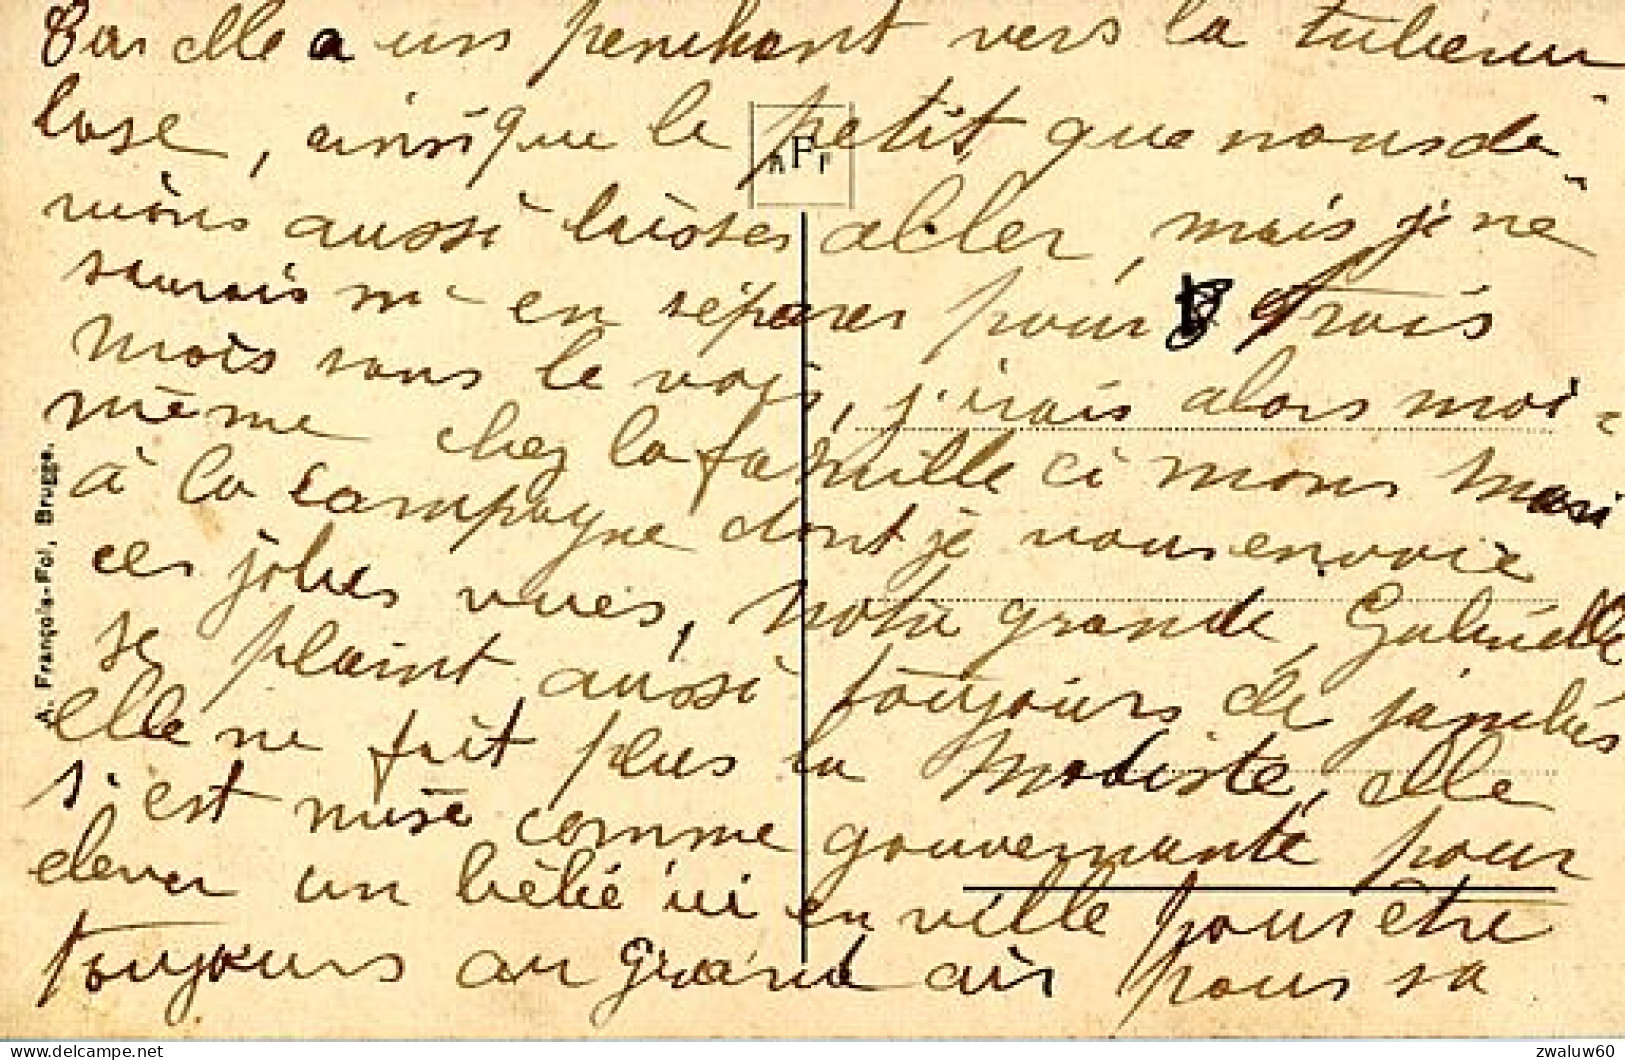 Car elle a un penchant vers la tubercu-
lose, ainsi que le petit que nous de-
vions aussi laisser aller, mais je ne
saurais m'en séparer pour trois
mois sans le voir, j'irais alors moi-
même chez la famille à mons mari
à la campagne dont je vous envoie
ces jolies vues, notre grande Gabrielle
se plaint aussi toujours de jambes
elle ne fait plus la Modiste, elle
s'est mise comme gouvernante pour
elever un bébé ici en ville pour être
toujours au grand air pour sa
A. François-Fol, Brugge.
zwaluw60